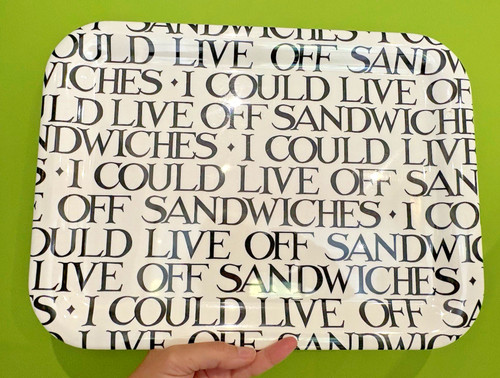 SANDWICHES · I COULD
OULD LIVE OFF SANDW
WICHES · I COULD LIVE OF
LD LIVE OFF SANDWICHE
NDWICHES · I COULD LIVE
S · I COULD LIVE OFF SAN
E OFF SANDWICHES · I CO
OULD LIVE OFF SANDWIC
LIVE OFF SANDWICHES ·
S · I COULD LIVE OFF SA
LD LIVE OFF SANDWICH